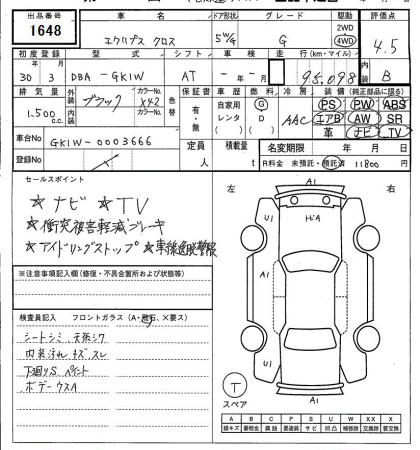 出品番号 車名 ドア形状 グレード 駆動 評価点
1648 エクリプス クロス 5W/G G 2WD 4WD 4.5
初度登録 型式 シフト 車検 走行(km・マイル) 内装
30 3 DBA-GK1W AT - 年 - 月 95,098 B
排気量 外装 カラーNo. 色替 保証書 車歴 燃料 冷房 装備(純正部品に限る)
1,500 c.c. ブラック X42 有・無 自家用 レンタ G D AAC PS PW ABS
内装 カラーNo. エアB AW SR
革 ナビ TV
車台No GK1W-0003666 定員 人 積載量 t 名変期限 年 月 日
登録No R料金 未預託・預託済 11800 円
セールスポイント
★ナビ ★TV
★衝突被害軽減ブレーキ
★アイドリングストップ ★車線逸脱警報
※注意事項記入欄(修復・不具合箇所および状態等)
検査員記入 フロントガラス(A・飛石、X要ス)
シートシミ、天張シワ
内装汚れ キズ、スレ
下廻りS、ペイント
ボデーウスA
左 A1 右
U1 HiA U1
A1 A1
A1
T
スペア
A B C P S U W X XX
線キズ 要板金 腐蝕 要塗装 サビ 凹凸 補修跡 交換跡 要交換